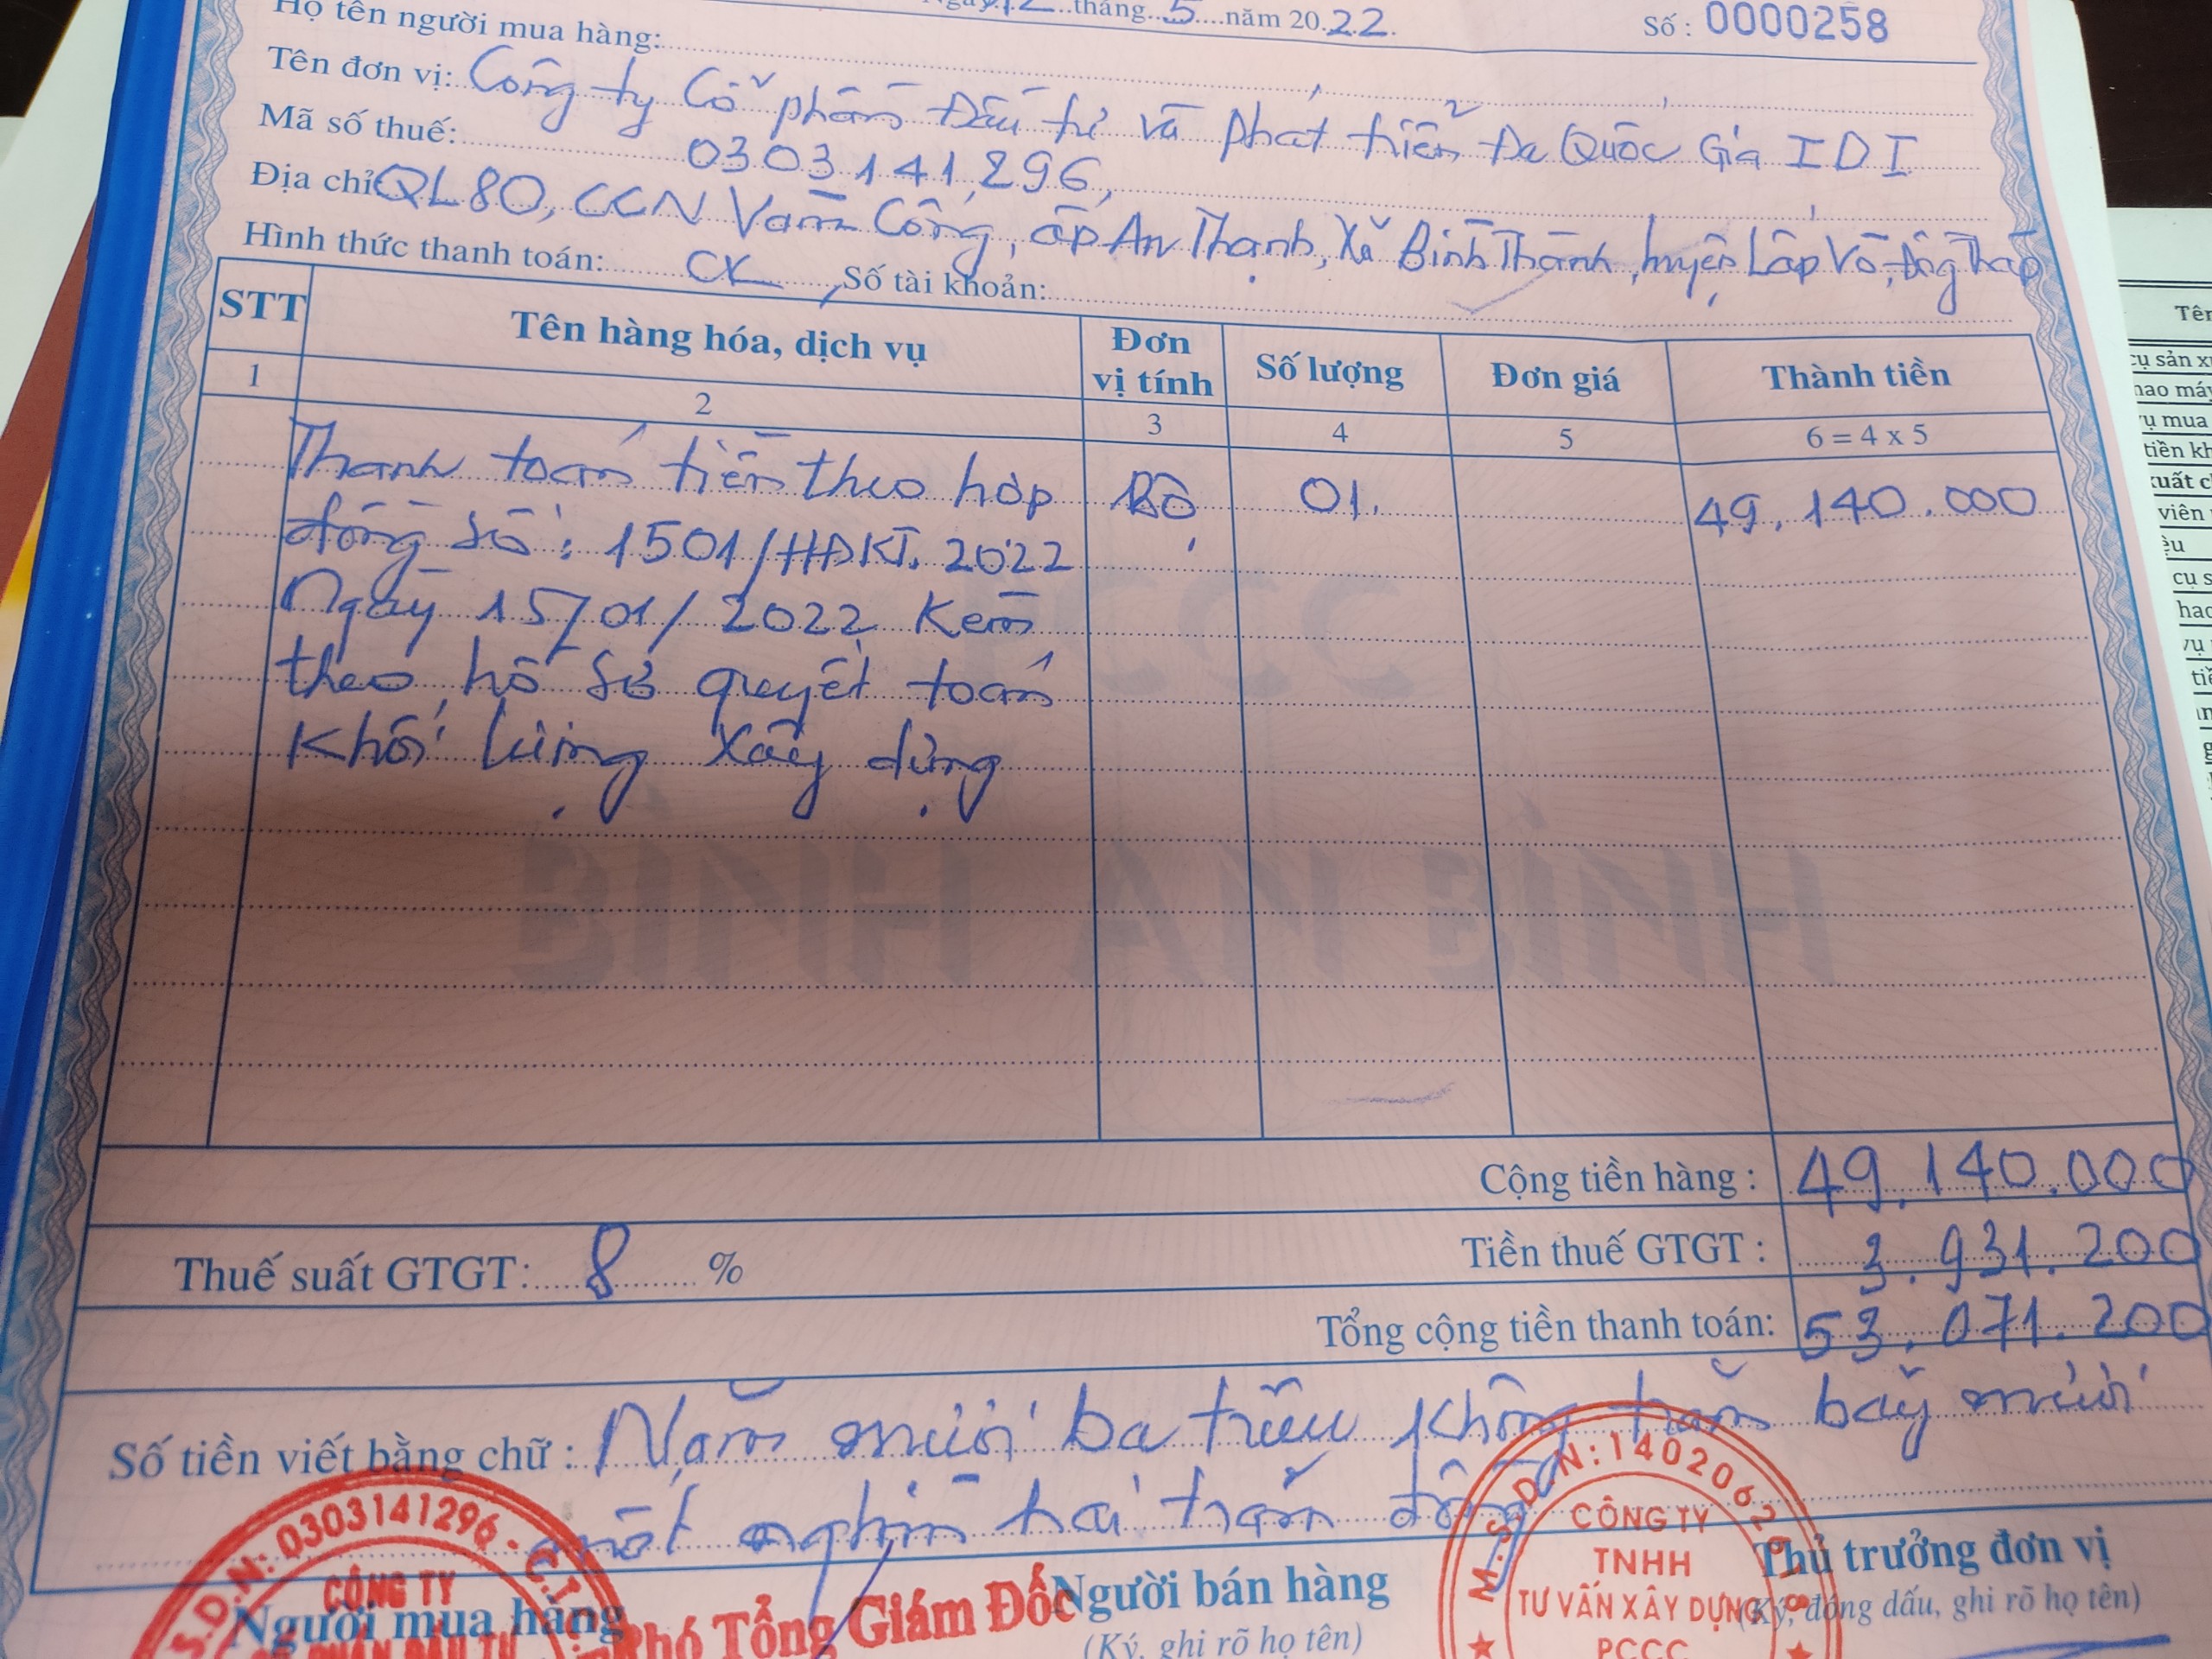 Ngày 12 tháng 5 năm 2022.
Số : 0000258
Họ tên người mua hàng:
Tên đơn vị: Công ty Cổ phần Đầu tư và phát triển Đa Quốc Gia IDI
Mã số thuế: 0303141296
Địa chỉ QL80, CCN Vàm Cống, ấp An Thạnh, Xã Bình Thành, huyện Lấp Vò, Đồng Tháp
Hình thức thanh toán: CK Số tài khoản:
STT Tên hàng hóa, dịch vụ Đơn vị tính Số lượng Đơn giá Thành tiền
1 2 3 4 5 6 = 4 x 5
Thanh toán tiền theo hợp Bộ 01. 49.140.000
đồng số: 1501/HĐKT.2022
Ngày 15/01/2022 Kèm
theo hồ sơ quyết toán
Khối lượng xây dựng
BÌNH AN BÌNH
Cộng tiền hàng : 49.140.000
Thuế suất GTGT: 8 % Tiền thuế GTGT : 3.931.200
Tổng cộng tiền thanh toán: 53.071.200
Số tiền viết bằng chữ : Năm mươi ba triệu không trăm bảy mươi
một nghìn hai trăm đồng
Người mua hàng
Phó Tổng Giám Đốc
Người bán hàng
(Ký, ghi rõ họ tên)
Thủ trưởng đơn vị
(Ký, đóng dấu, ghi rõ họ tên)
S.D.N: 0303141296 - C.T.
CÔNG TY
M.S.D.N: 14020620
CÔNG TY
TNHH
TƯ VẤN XÂY DỰNG
PCCC
Tên
cụ sản x
hao má
vụ mua
tiền kh
xuất c
viên
ệu
cụ s
hao
vụ